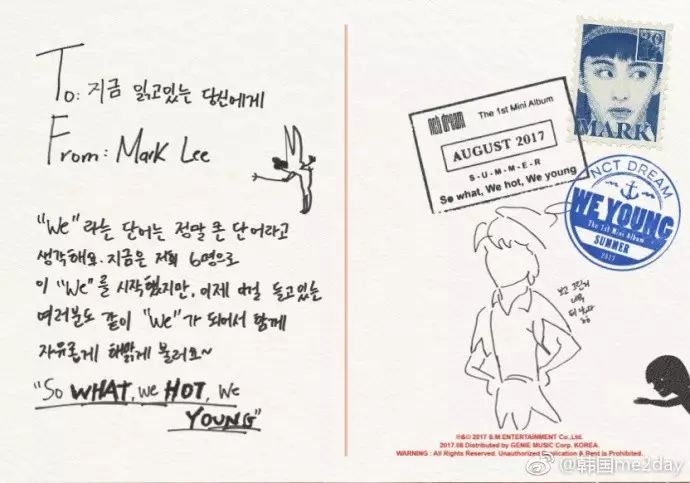 To: 지금 읽고있는 당신에게
From: Mark Lee
"We" 라는 단어는 정말 큰 단어라고
생각해요. 지금은 저희 6명으로
이 "We"를 시작했지만, 이제 이걸 듣고있는
여러분도 같이 "We"가 되어서 함께
자유롭게 해맑게 불러요~
"So WHAT, We HOT, We
YOUNG"
nct dream The 1st Mini Album
AUGUST 2017
S-U-M-M-E-R
So what, We hot, We young
MARK
NCT DREAM
WE YOUNG
The 1st Mini Album
SUMMER
2017
보고 그린게
℗&© 2017 S.M.ENTERTAINMENT Co.,Ltd.
2017.08 Distributed by GENIE MUSIC Corp. KOREA.
WARNING : All Rights Reserved. Unauthorized Duplication & Rent is Prohibited.
@韩国me2day